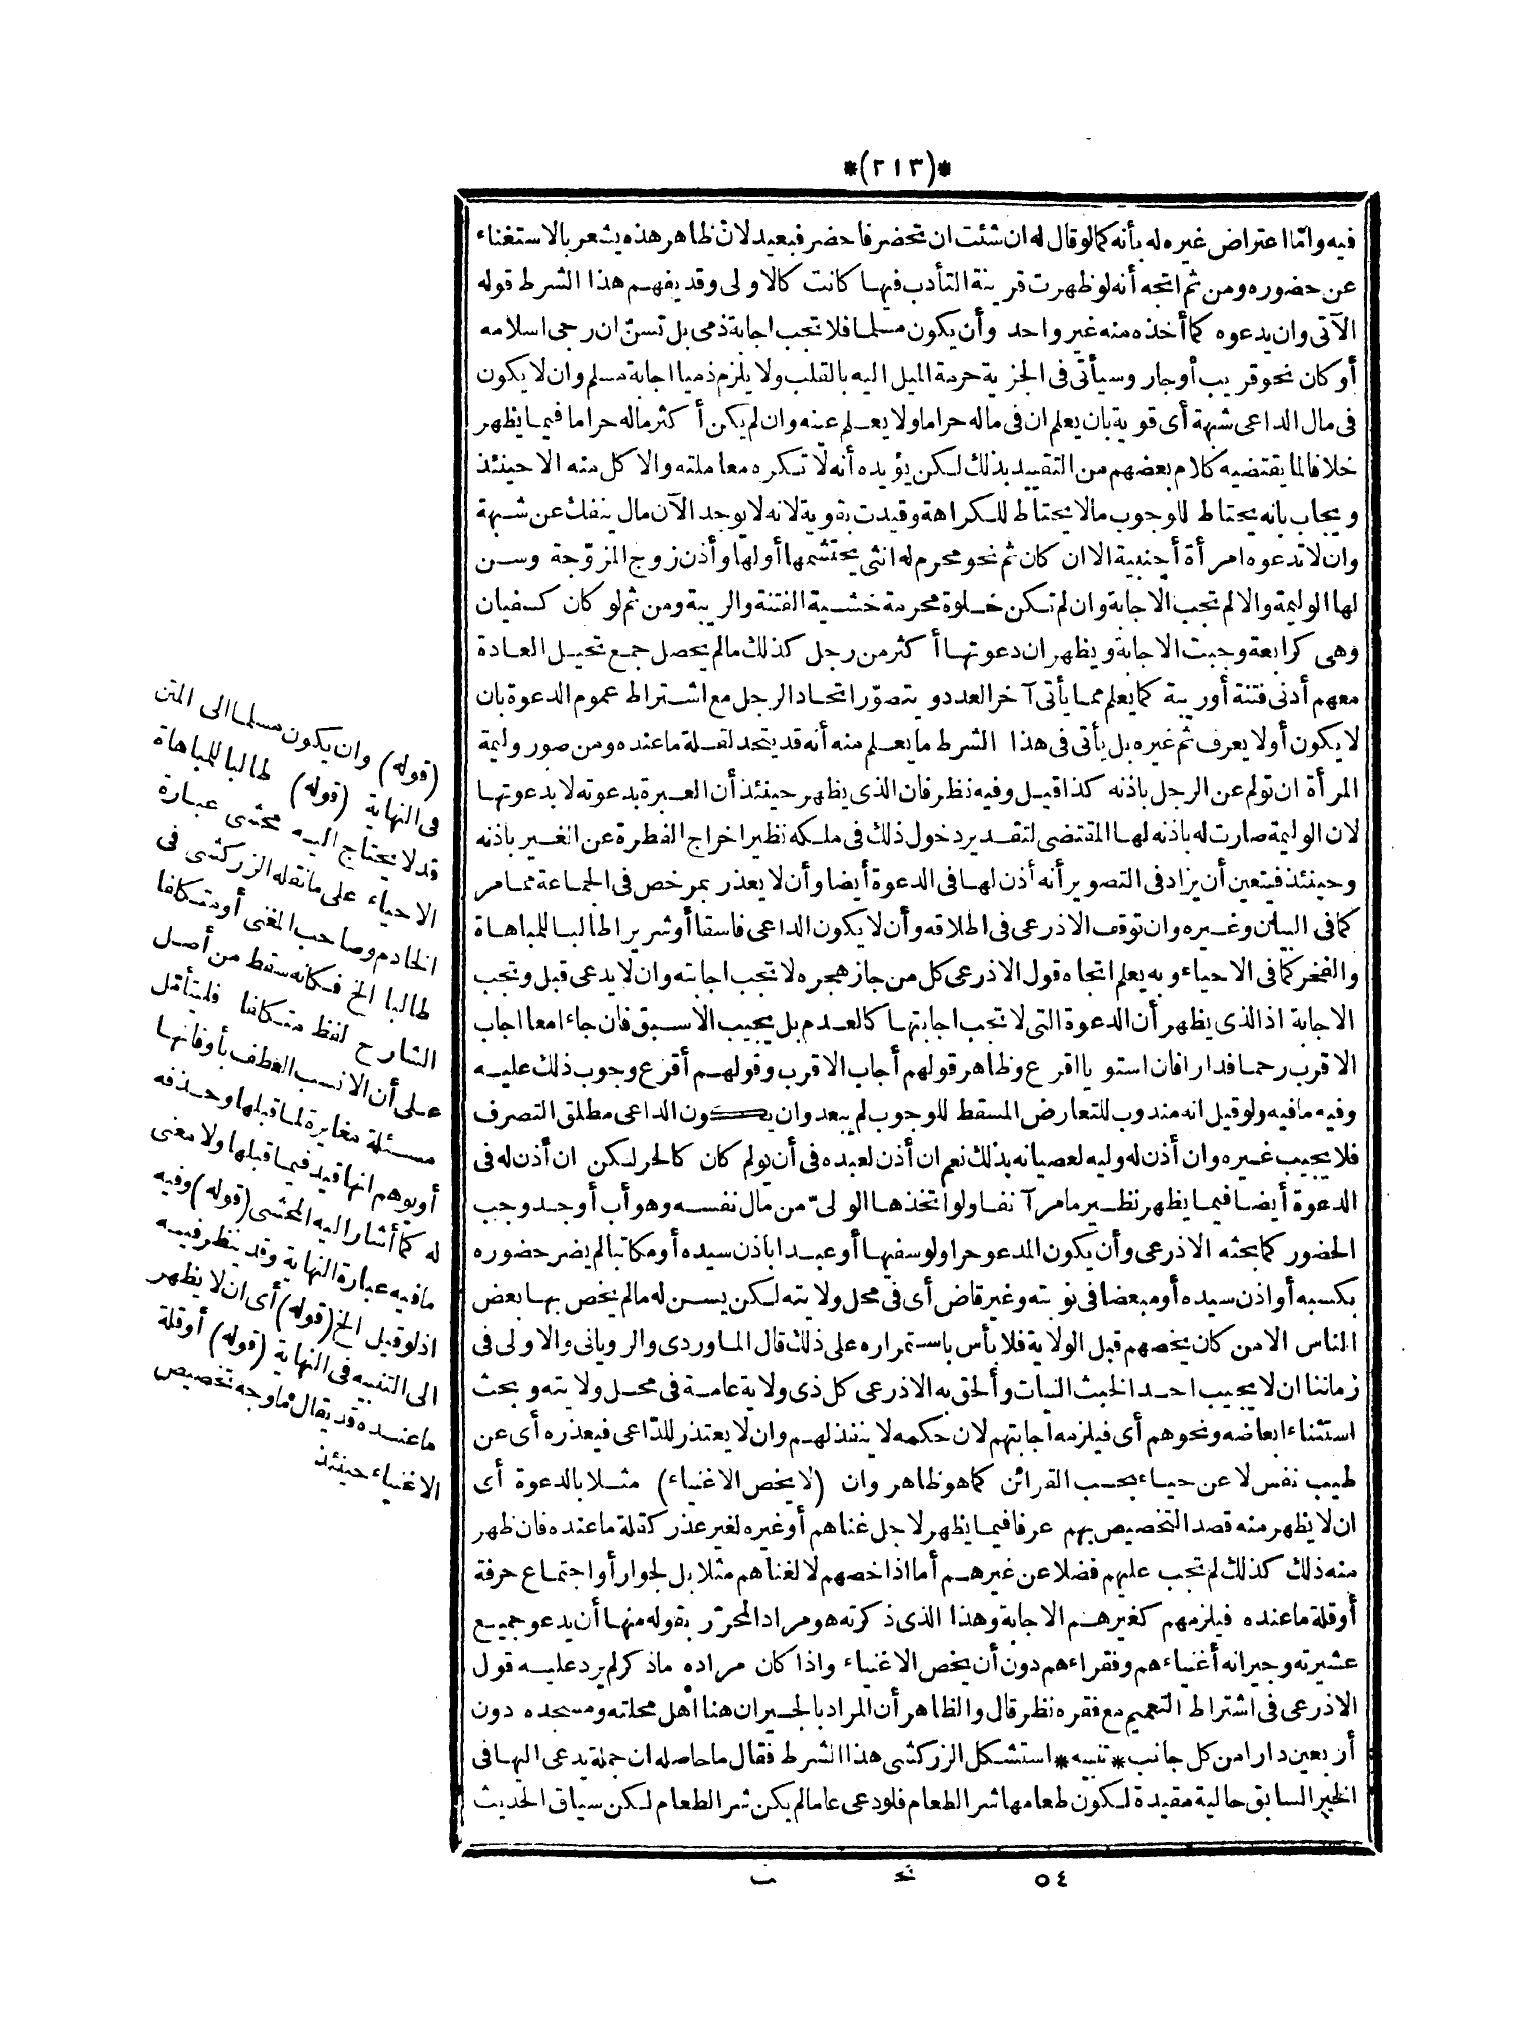 *(٢١٣)*
فيه وامّا اعتراض غيره له بأنه كما لو قال له ان شئت ان تحضر فاحضر فبعيد لانّ ظاهر هذه يشعر بالاستغناء
عن حضوره ومن ثم اتجه أنه لو ظهرت قرينة التأدب فيها كانت كالاولى وقد يفهم هذا الشرط قوله
الآتى وان يدعوه كما أخذه منه غير واحد وأن يكون مسلما فلا تجب اجابة ذمى بل تسنّ ان رجى اسلامه
أو كان نحو قريب أو جار وسيأتى فى الجزية حرمة الميل اليه بالقلب ولا يلزم ذميا اجابة مسلم وان لا يكون
فى مال الداعى شبهة أى قوية بان يعلم ان فى ماله حراما ولا يعلم عينه وان لم يكن أكثر ماله حراما فيما يظهر
خلافا لما يقتضيه كلام بعضهم من التقييد بذلك لكن يؤيده أنه لا تكره معاملته والاكل منه الا حينئذ
ويجاب بانه يحتاط للوجوب ما لا يحتاط للكراهة وقيدت بقوية لانه لا يوجد الآن مال ينفك عن شبهة
وان لا تدعوه امرأة أجنبية الا ان كان ثم نحو محرم له انثى يحتشمها أو لها وأذن زوج المزوّجة وسن
لها الوليمة والا لم تجب الاجابة وان لم تكن خلوة محرمة خشية الفتنة والريبة ومن ثم لو كان كسفيان
وهى كرابعة وجبت الاجابة ويظهر ان دعوتها أكثر من رجل كذلك ما لم يحصل جمع تحيل العادة
معهم أدنى فتنة أو ريبة كما يعلم مما يأتى آخر العدد ويتصوّر اتحاد الرجل مع اشتراط عموم الدعوة بان
لا يكون أو لا يعرف ثم غيره بل يأتى فى هذا الشرط ما يعلم منه أنه قد يتحد لقلة ما عنده ومن صور وليمة
المرأة ان تولم عن الرجل باذنه كذا قيل وفيه نظر فان الذى يظهر حينئذ أن العبرة بدعوته لا بدعوتها
لان الوليمة صارت له باذنه لها المقتضى لتقدير دخول ذلك فى ملكه نظير اخراج الفطرة عن الغير باذنه
وحينئذ فيتعين أن يزاد فى التصوير أنه أذن لها فى الدعوة أيضا وأن لا يعذر بمرخص فى الجماعة مما مر
كما فى البيان وغيره وان توقف الاذرعى فى اطلاقه وأن لا يكون الداعى فاسقا أو شريرا طالبا للمباهاة
والفخر كما فى الاحياء وبه يعلم اتجاه قول الاذرعى كل من جاز هجره لا تجب اجابته وان لا يدعى قبل وتجب
الاجابة اذ الذى يظهر أن الدعوة التى لا تجب اجابتها كالعدم بل يجيب الاسبق فان جاءا معا اجاب
الاقرب رحما فدارا فان استويا اقرع وظاهر قولهم أجاب الاقرب وقولهم أقرع وجوب ذلك عليه
وفيه ما فيه ولو قيل انه مندوب للتعارض المسقط للوجوب لم يبعد وان يكون الداعى مطلق التصرف
فلا يجيب غيره وان أذن له وليه لعصيانه بذلك نعم ان أذن لعبده فى أن يولم كان كالحر لكن ان أذن له فى
الدعوة أيضا فيما يظهر نظير ما مر آنفا ولو اتخذها الولىّ من مال نفسه وهو أب أو جد وجب
الحضور كما بحثه الاذرعى وأن يكون المدعو حرا ولو سفيها أو عبدا باذن سيده أو مكاتبا لم يضر حضوره
بكسبه أو اذن سيده أو مبعضا فى نوبته وغير قاض أى فى محل ولايته لكن يسن له ما لم يخص بها بعض
الناس الا من كان يخصهم قبل الولاية فلا بأس باستمراره على ذلك قال الماوردى والرويانى والاولى فى
زماننا ان لا يجيب احدا لخبث النيات وألحق به الاذرعى كل ذى ولاية عامة فى محل ولايته وبحث
استثناء ابعاضه ونحوهم أى فيلزمه اجابتهم لان حكمه لا ينفذ لهم وان لا يعتذر للدّاعى فيعذره أى عن
طيب نفس لا عن حياء بحسب القرائن كما هو ظاهر وان (لا يخص الاغنياء) مثلا بالدعوة أى
ان لا يظهر منه قصد التخصيص بهم عرفا فيما يظهر لاجل غناهم أو غيره لغير عذر كقلة ما عنده فان ظهر
منه ذلك كذلك لم تجب عليهم فضلا عن غيرهم أما اذا خصهم لا لغناهم مثلا بل لجوار أو اجتماع حرفة
أو قلة ما عنده فيلزمهم كغيرهم الاجابة وهذا الذى ذكرته هو مراد المحرّر بقوله منها أن يدعو جميع
عشيرته وجيرانه أغنياءهم وفقراءهم دون أن يخص الاغنياء واذا كان مراده ما ذكر لم يرد عليه قول
الاذرعى فى اشتراط التعميم مع فقره نظر قال والظاهر أن المراد بالجيران هنا أهل محلته ومسجده دون
أربعين دارا من كل جانب *تنبيه* استشكل الزركشى هذا الشرط فقال ما حاصله ان جملة يدعى اليها فى
الخبر السابق حالية مقيدة لكون طعامها شر الطعام فلو دعى عاما لم يكن شر الطعام لكن سياق الحديث
(قوله) وان يكون مسلما الى المتن
فى النهاية (قوله) طالبا للمباهاة
قد لا يحتاج اليه محشى عبارة
الاحياء على ما نقله الزركشى فى
الخادم وصاحب المغنى أو متكلفا
طالبا الخ فكانه سقط من أصل
الشارح لفظ متكلفا فليتأمّل
على أن الانسب العطف بأو فانها
مسئلة مغايرة لما قبلها وحذفه
أو يوهم انها قيد فيما قبلها ولا معنى
له كما أشار اليه المحشى (قوله) وفيه
ما فيه عبارة النهاية وقد ينظر فيه
اذ لو قيل الخ (قوله) أى ان لا يظهر
الى التنبيه فى النهاية (قوله) أو قلة
ما عنده قد يقال فما وجه تخصيص
الاغنياء حينئذ
٥٤ تحـ ت